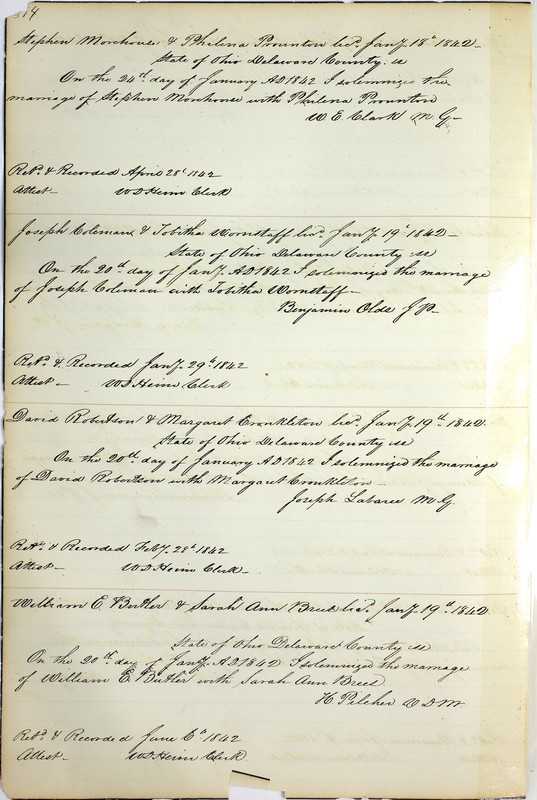 314
Stephen Morehouse & Philena Prounton licd. Jany. 18th 1842
State of Ohio Delaware County. ss
On the 24th day of January AD 1842 I solemnized the
marriage of Stephen Morehouse with Philena Prounton
W. E. Clark M G
Retd. & Recorded April 28t 1842
Attest W D Heim Clerk
Joseph Coleman & Tobitha Wornstaff licd. Jany 19t 1842
State of Ohio Delaware County ss
On the 20th day of Jany. AD 1842 I solemnized the marriage
of Joseph Coleman with Tobitha Wornstaff
Benjamin Olds J P.
Retd. & Recorded Jany. 29th 1842
Attest W D Heim Clerk
David Robertson & Margaret Cronkleton licd. Jany 19th. 1842
State of Ohio Delaware County ss
On the 20th day of January AD 1842 I solemnized the marriage
of David Robertson with Margaret Cronkleton
Joseph Labaree M. G.
Retd. & Recorded Feby. 28th 1842
Attest W D Heim Clerk
William E. Butler & Sarah Ann Breel licd. Jany 19th 1842
State of Ohio Delaware County ss
On the 20th. day of Jany. AD 1842 I solemnized the marriage
of William E. Butler with Sarah Ann Breel
H. Pilcher V D M
Retd. & Recorded June 6th 1842
Attest W D Heim Clerk